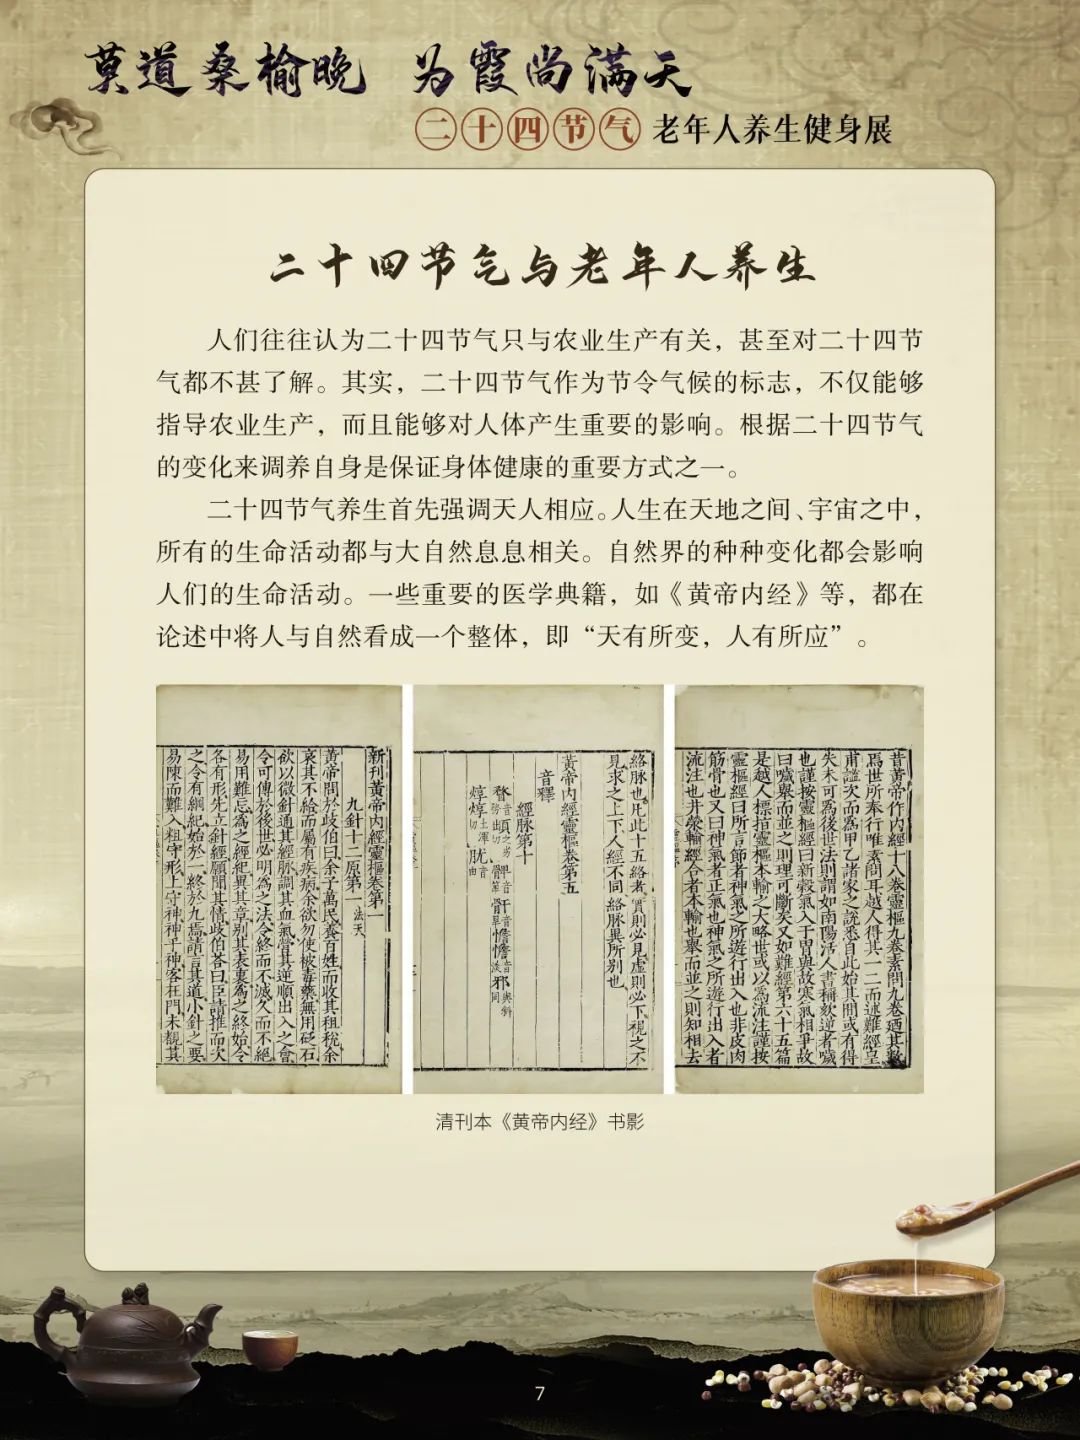 莫道桑榆晚 为霞尚满天
二十四节气 老年人养生健身展
二十四节气与老年人养生
人们往往认为二十四节气只与农业生产有关，甚至对二十四节
气都不甚了解。其实，二十四节气作为节令气候的标志，不仅能够
指导农业生产，而且能够对人体产生重要的影响。根据二十四节气
的变化来调养自身是保证身体健康的重要方式之一。
二十四节气养生首先强调天人相应。人生在天地之间、宇宙之中，
所有的生命活动都与大自然息息相关。自然界的种种变化都会影响
人们的生命活动。一些重要的医学典籍，如《黄帝内经》等，都在
论述中将人与自然看成一个整体，即“天有所变，人有所应”。
新刊黃帝內經靈樞卷第一
九針十二原第一 法天
黃帝問於歧伯曰余子萬民養百姓而收其租稅余
哀其不給而屬有疾病余欲勿使被毒藥無用砭石
欲以微針通其經脉調其血氣營其逆順出入之會
令可傳於後世必明為之法令終而不滅久而不絕
易用難忘為之經紀異其章別其表裏為之終始令
各有形先立針經願聞其情歧伯荅曰臣請推而次
之令有綱紀始於一終於九焉請言其道小針之要
易陳而難入粗守形上守神神乎神客在門未覩其
絡脉也凡此十五絡者實則必見虛則必下視之不
見求之上下人經不同絡脉異所別也
黃帝內經靈樞卷第五
音釋
經脉第十
昔黃帝作內經十八卷靈樞九卷素問九卷迺其數
焉世所奉行唯素問耳越人得其一二而述難經皇
甫謐次而為甲乙諸家之說悉自此始其間或有得
失未可為後世法則謂如南陽活人書稱欬逆者噦
也謹按靈樞經曰新穀氣入于胃與故寒氣相爭故
曰噦舉而並之則理可斷矣又如難經第六十五篇
是越人標指靈樞本輸之大略世或以為流注謹按
靈樞經曰所言節者神氣之所遊行出入也非皮肉
筋骨也又曰神氣者正氣也神氣之所遊行出入者
流注也井滎輸經合者本輸也舉而並之則知相去
清刊本《黄帝内经》书影
7